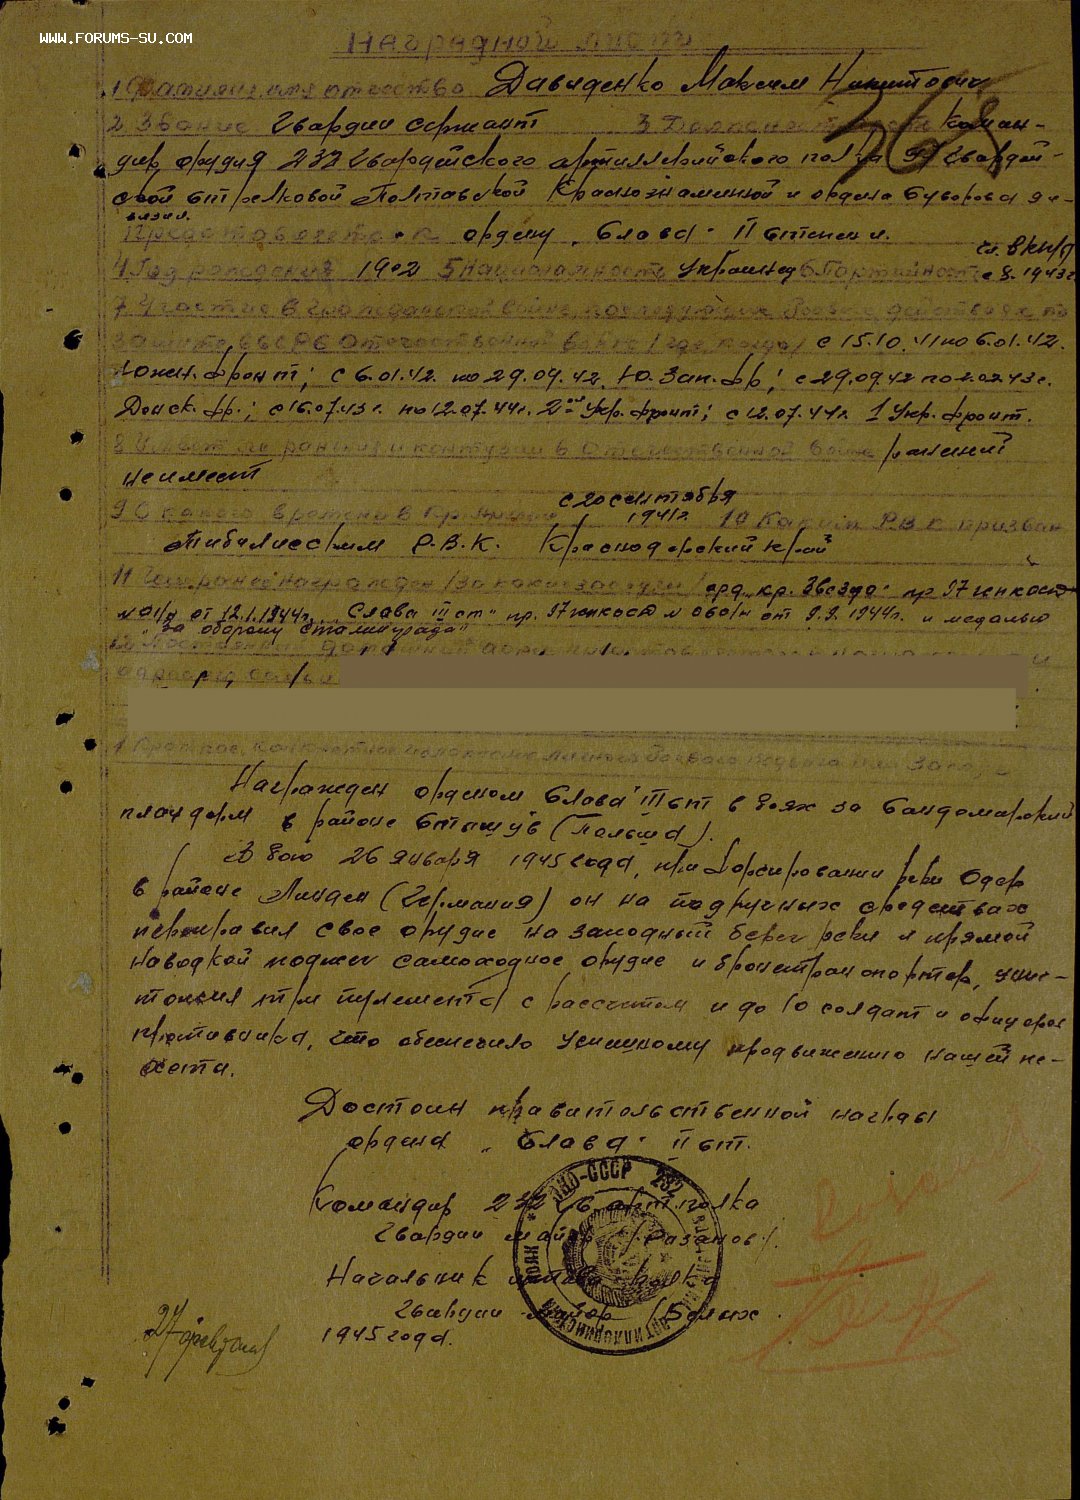 WWW.FORUMS-SU.COM
Наградной лист
1 Фамилия имя отчество Давиденко Максим Никитович
2 Звание Гвардии сержант 3 Должность часть коман-
дир орудия 232 Гвардейского артиллерийского полка 97 Гвардей-
ской стрелковой Полтавской Краснознаменной и ордена Суворова ди-
визии.
Представляется к ордену "Слава" II степени.
чл. ВКП/б
4 Год рождения 1902 5 Национальность украинец 6 Партийность с 8. 1943г
7 Участие в гражданской войне, последующих боевых действиях по
защите СССР и Отечественной войне /где, когда/ с 15.10.41 по 6.01.42.
Южн. фронт; с 6.01.42. по 29.09.42. Ю. Зап. фр; с 29.09.42 по 2.02.43г.
Донск. фр.; с 16.07.43г. по 12.07.44г. 2ой Укр. фронт; с 12.07.44г. 1 Укр. фронт.
8 Имеет ли ранения и контузии в Отечественной войне ранений
не имеет
с 20 сентября
9 С какого времени в Кр. Армии 1941г 10 Каким РВК призван
Р.В.К. Краснодарский край
11 Чем ранее награжден /за какие заслуги/ орд. кр. Звезда пр 97
от 12.1.1944г., "Слава III ст" пр. 97 от 9.9.1944г. и медалью
"За оборону Сталинграда"
12 Постоянный домашний адрес
адрес семьи
1 Краткое, конкретное изложение личного боевого подвига или
Награжден орденом Слава III ст в боях за Сандомирский
плацдарм в районе (Польша).
В бою 26 января 1945 года, при форсировании реки Одер
в районе Линден (Германия) он на подручных средствах
переправил свое орудие на западный берег реки и прямой
наводкой поджег самоходное орудие и бронетранспортер, унич-
тожил три пулемета с рассчетом и до 10 солдат и офицеров
противника, что обеспечило успешному продвижению нашей пе-
хоты.
Достоин правительственной награды
ордена "Слава" II ст.
Командир 232 Гв арт. полка
Гвардии майор /Рязанов/.
Начальник штаба полка
Гвардии майор /Белых
27 февраля 1945 года.
НКО-СССР 232 АРТИЛЛЕРИЙСКИЙ ПОЛК